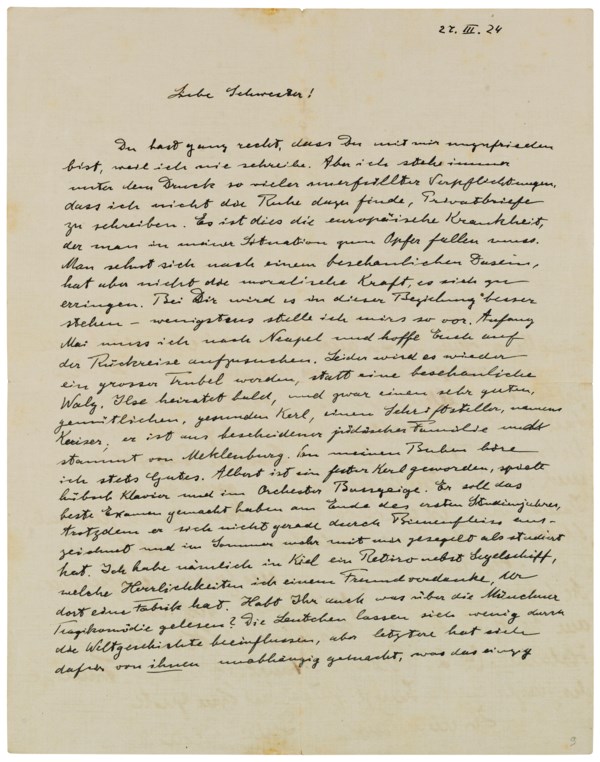 27. III. 24
Liebe Schwester!
Du hast ganz recht, dass Du mit mir unzufrieden
bist, weil ich nie schreibe. Aber ich stehe immer
unter dem Druck so vieler unerfüllter Verpflichtungen,
dass ich nicht die Ruhe dazu finde, Privatbriefe
zu schreiben. Es ist dies die europäische Krankheit,
der man in meiner Situation zum Opfer fallen muss.
Man sehnt sich nach einem beschaulichen Dasein,
hat aber nicht die moralische Kraft, es sich zu
erringen. Bei Dir wird es in dieser Beziehung besser
stehen – wenigstens stelle ich mirs so vor. Anfang
Mai muss ich nach Neapel und hoffe Euch auf
der Rückreise aufzusuchen. Leider wird es wieder
ein grosser Trubel werden, statt eine beschauliche
Ilse heiratet bald, und zwar einen sehr guten,
gemütlichen, gesunden Kerl, einen Schriftsteller, namens
Kaiser; er ist aus bescheidener jüdischer Familie und
stammt von Meklenburg. Von meinen Buben höre
ich stets Gutes. Albert ist ein fester Kerl geworden, spielt
hübsch Klavier und im Orchester Bassgeige. Er soll das
beste Examen gemacht haben am Ende des ersten Studienjahres,
trotzdem er sich nicht gerade durch Bienenfleiss aus-
zeichnet und im Sommer mehr mit mir gesegelt als studiert
hat. Ich habe nämlich in Kiel ein Retiro nebst Segelschiff,
welche Herrlichkeiten ich einem Freund verdanke, der
dort eine Fabrik hat. Habt Ihr auch was über die Münchner
Tragikomödie gelesen? Die Leutchen lassen sich wenig durch
die Weltgeschichte beeinflussen, aber letztere hat sich
dafür von ihnen unabhängig gemacht, was das einzig